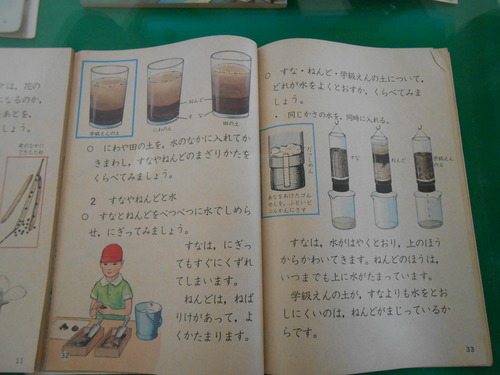 は、花の
なるのか、
あとを、
しょう。
11
学級えんの土
にわの土
田の土
ねんど
すな
○ にわや田の土を、水のなかに入れてか
きまわし、すなやねんどのまざりかたを
くらべてみましょう。
2 すなやねんどと水
○ すなとねんどをべつべつに水でしめら
せ、にぎってみましょう。
すなは、にぎっ
てもすぐにくずれ
てしまいます。
ねんどは、ねば
りけがあって、よ
くかたまります。
32
○ すな・ねんど・学級えんの土について、
どれが水をよくとおすか、くらべてみま
しょう。
・同じかさの水を、同時に入れる。
だっしめん
あなをあけたゴム
せんを、ふといビ
ニルかんにさす
すな
ねんど
学級えん
の土
すなは、水がはやくとおり、上のほう
からかわいてきます。ねんどのほうは、
いつまでも上に水がたまっています。
学級えんの土が、すなよりも水をとお
しにくいのは、ねんどがまじっているか
らです。
33